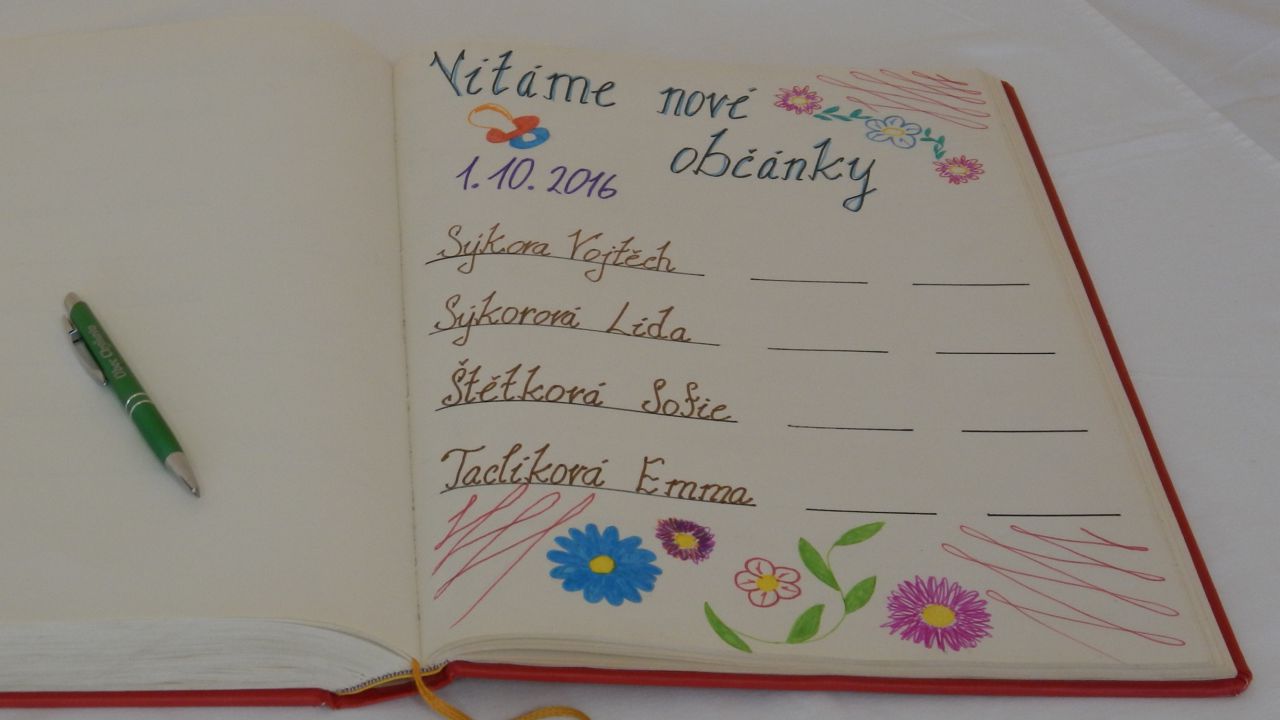 Vítáme nové
občánky
1. 10. 2016
Sýkora Vojtěch
Sýkorová Lída
Štětková Sofie
Taclíková Emma